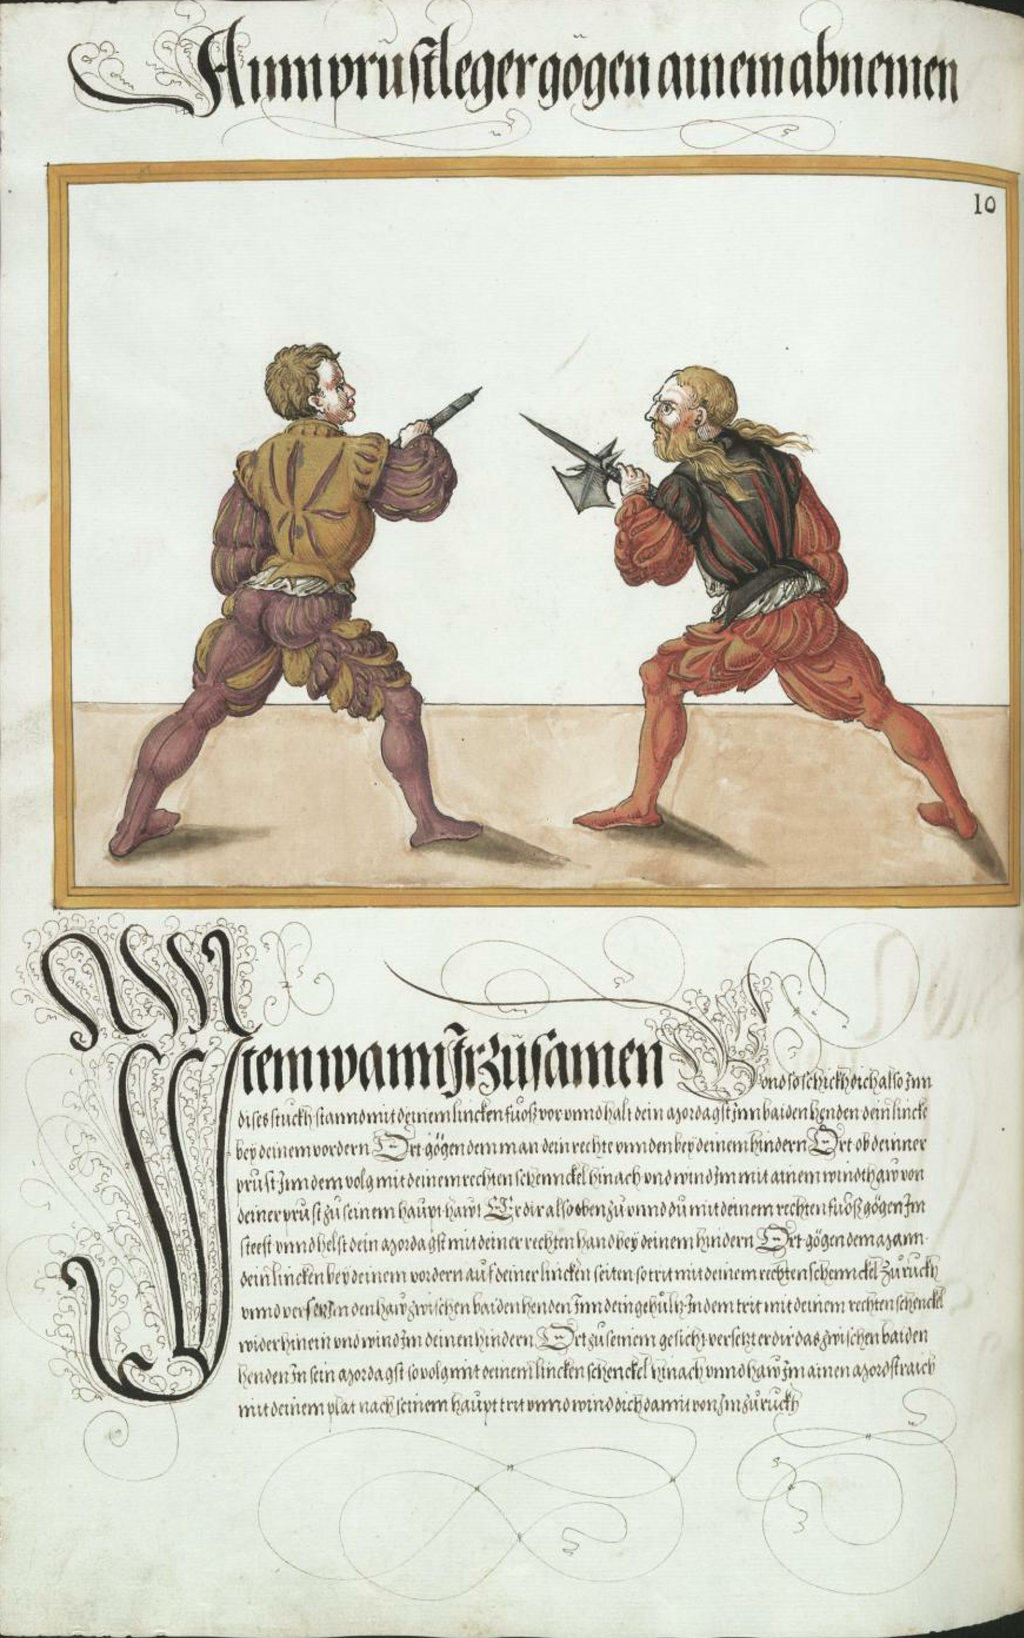 Ain prustleger gögen ainem abnemen
10
Item wann Ir zusamen gond so schickh dich also Inn
dises stuckh stannd mit deinem lincken fuoß vor vnnd halt dein mordagst Inn baiden henden dein lincke
bey deinem vordern Ort gögen dem man dein rechte vnnden bey deinem hindern Ort ob deinner
prust Inn dem volg mit deinem rechten schennckel hinach vnd wind Im mit ainem windthaw von
deiner prust zu seinem haupt hawt Er dir also oben zu vnnd du mit deinem rechten fuoß gögen Im
steest vnnd helst dein mordagst mit deiner rechten hand bey deinem hindern Ort gögen dem mann
dein lincken bey deinem vordern auf deiner lincken seiten so trit mit deinem rechten schennckel Zuruckh
vnnd versetz In den haw zwischen baiden henden Inn dein gehültz Indem trit mit deinem rechten schenckel
wider hinein vnd wind Im deinen hindern Ort zu seinem gesicht versetzt er dir das zwischen baiden
henden In sein mordagst so volg mit deinem lincken schenckel hinach vnnd haw Im ainen mordstraich
mit deinem plat nach seinem haupt trit vnnd wind dich damit von Im zuruckh